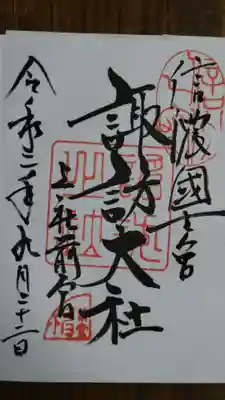 信濃國一之宮
諏訪大社
上社前宮
令和三年九月二十二日